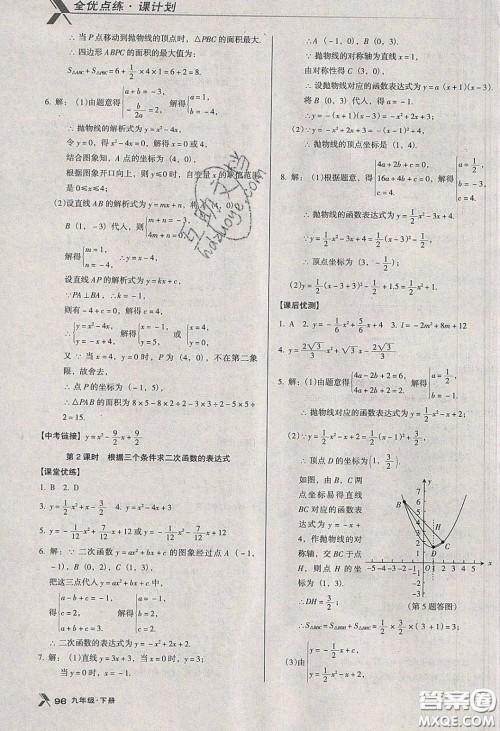 全优点练·课计划
∴ 当 P 点移动到抛物线的顶点时，△PBC 的面积最大.
∴ 四边形 ABPC 的面积的最大值为：
S△ABC + S△PBC = 6 + 1/2 × 4 × 1 = 6 + 2 = 8.
6. 解：(1)由题意得 { a+b=-3, -b/2a=2, 解得 { a=1, b=-4,
∴ 抛物线的解析式为 y=x²-4x,
令 y=0, 得 x²-4x=0, 解得 x=0 或 x=4,
结合图象知，A 点的坐标为 (4, 0),
根据图象开口向上，则 y≤0 时，自变量 x 的取值范围
是 0≤x≤4;
(2)设直线 AB 的解析式为 y=mx+n,
B (1, -3) 代入，则 { m+n=-3, 4m+n=0,
解得 { m=1, n=-4,
设直线 AP 的解析式为 y=kx+c,
∵ PA⊥BA, ∴ k=-1,
则有 -4+c=0, 解得 c=4,
∴ { y=x²-4x, y=-x+4, 解得 { x=-1, y=5 或 { x=4, y=0,
又∵ 当 x=4, y=0 时，P 为 (4, 0), 不在第二象
限，故舍去，
∴ 点 P 的坐标为 (-1, 5),
∴ △PAB 的面积为 8×5-8×2÷2-6×3÷2-5×5÷
2=15.
【中考链接】 y=x²-9/2x+9/2
第 2 课时 根据三个条件求二次函数的表达式
【课堂优练】
1. B 2. D
3. y=1/2x²-3/2x-3 4. y=x²-4x+3
5. y=1/12x²+7/12x+12 或 y=1/12x²-7/12x+12
6. 解：∵ 二次函数 y=ax²+bx+c 的图象经过点 A (-1,
-1), B (0, 2), C (1, 3),
把这三点代入 y=ax²+bx+c,
得 { a-b+c=-1, c=2, a+b+c=3, 解得 { a=-1, b=2, c=2,
∴ 二次函数的表达式为 y=-x²+2x+2.
7. 解：(1)直线 y=3x+3, 当 x=0 时，y=3, 当 y=0 时，
x=-1,
96 九年级·下册
∴ A (-1, 0), B (0, 3).
∵ 抛物线的对称轴为直线 x=1,
由对称性得 C (3, 0),
∴ 设抛物线对应的函数表达式为 y=a (x+1)(x-3),
将 B (0, 3) 代入，得 a=-1,
∴ y=-(x+1)(x-3)=-x²+2x+3;
(2)∵ y=-x²+2x+3=-(x-1)²+4,
∴ 抛物线的顶点坐标是 (1, 4).
8. 解：(1)根据题意，得 { 4a+2b+c=0, 16a+4b+c=0, c=4, 解得 { a=1/2, b=-3, c=4,
∴ 抛物线的函数表达式为 y=1/2x²-3x+4,
∵ y=1/2x²-3x+4=1/2(x-3)²-1/2,
∴ 顶点坐标为 (3, -1/2);
(2)y=1/2(x-3+3)²-1/2+1.5=1/2x²+1.
【课后优测】
1. A 2. y=-1/2x²+5/6x+4 3. l=-2m²+8m+12
4. y=2√3/3x²+√3x-2√3/3
5. 解：(1)由题意得 { 4a-2b+2=6, 4a+2b+2=2, 解得 { a=1/2, b=-1,
∴ 抛物线解析式为 y=1/2x²-x+2;
(2)∵ y=1/2x²-x+2=1/2(x-1)²+3/2,
∴ 顶点 D 坐标为 (1, 3/2),
如图，由 B、C 两
点坐标易得直线
BC 为 y=-x+
4, 作抛物线的对
称轴，交 BC 于
点 H, 则点 H 的
坐标为 (1, 3).
∴ DH=3/2
∴ S△BDC=S△BDH+S△DHC=1/2×3/2×(3+1)=3;
(3)由
y
7
6
5
4
3
2
1
B
C
D
-5-4-3-2-1 O 1 2 3 4 5 x
(第 5 题答图)
互助文档
hdzuoye.com
答案圈
MXQE.COM